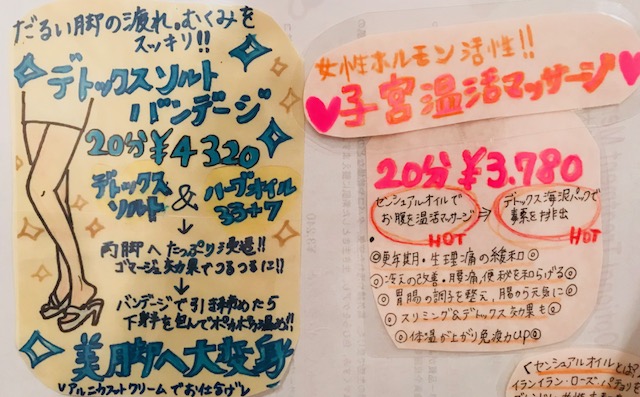 だるい脚の疲れ。むくみを
スッキリ!!
デトックスソルト
バンデージ
20分¥4320
デトックス
ソルト
&
ハーブオイル
33+7
両脚へたっぷり浸透!!
ゴマージュ効果でつるつるに!!
バンデージで引き締めたら
下半身を包んでポカポカ温め!!
美脚へ大変身
アルニカフットクリームでお仕上げ
女性ホルモン活性!!
子宮温活マッサージ
20分¥3.780
センシュアルオイルで
お腹を温活マッサージ
HOT
デトックス海泥パックで
毒素を排出
HOT
◎更年期・生理痛の緩和◎
◎冷えの改善・腰痛、便秘を和らげる◎
◎胃腸の調子を整え、腸から元気に◎
◎スリミング&デトックス効果も◎
◎体温が上がり免疫力UP◎
<センシュアルオイルとは
イランイラン・ローズ・パチュリ